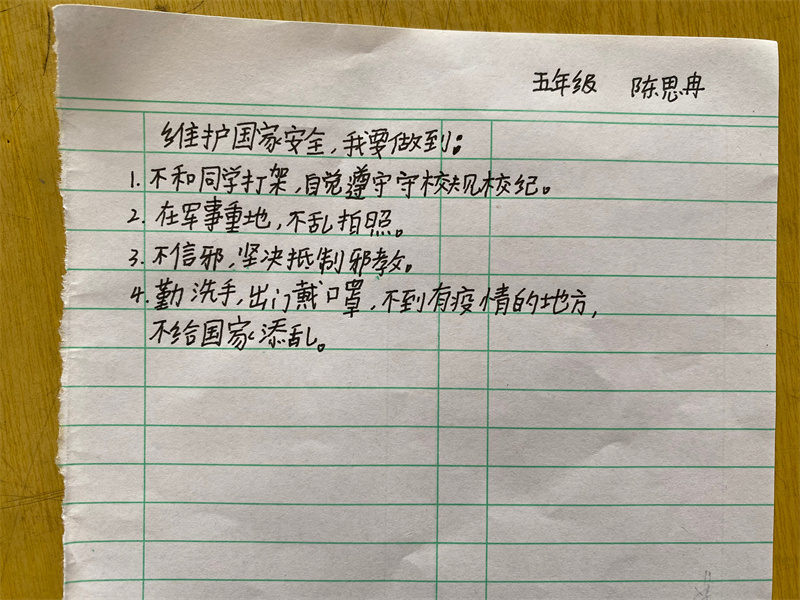 五年级 陈思冉
维护国家安全,我要做到:
1.不和同学打架,自觉遵守守校规校纪。
2.在军事重地,不乱拍照。
3.不信邪,坚决抵制邪教。
4.勤洗手,出门戴口罩,不到有疫情的地方,
不给国家添乱。